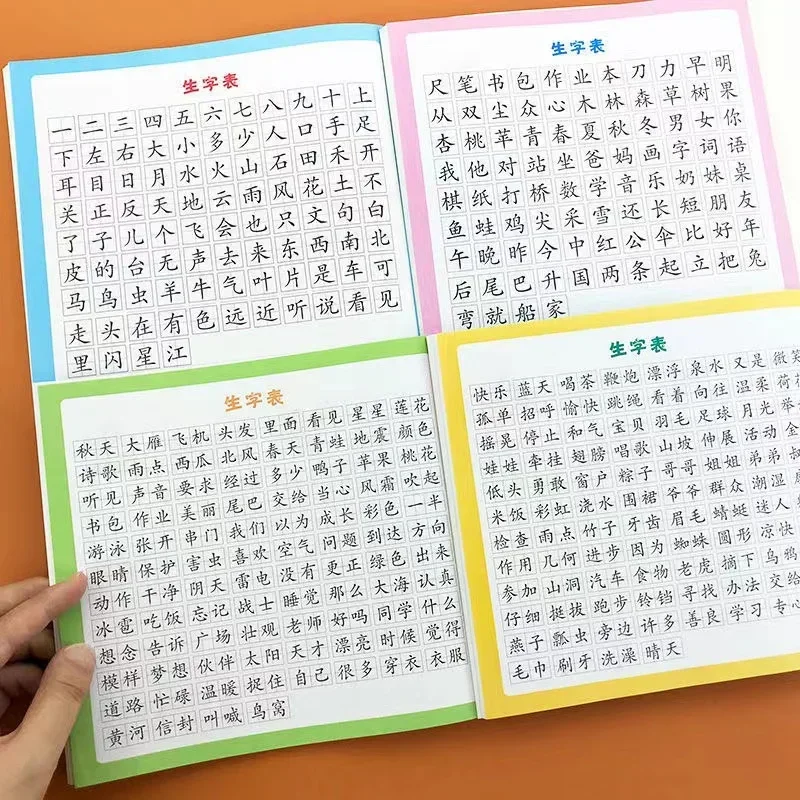 生字表
一二三四五六七八九十上
下左右大小多少人口手足
耳目日月水火山石田禾开
关正反天地云雨风花土不
了子儿个飞会也只文句白
皮的台无声去来东西南北
马鸟虫羊牛气叶片是车可
走头在有色远近听说看见
里闪星江
生字表
尺笔书包作业本刀力早明
从双尘众心木林森草树果
杏桃苹青春夏秋冬男女你
我他对站坐爸妈画字词语
棋纸打桥数学音乐奶妹桌
鱼蛙鸡尖采雪还长短朋友
午晚昨今中红公伞比好年
后尾巴升国两条起立把兔
弯就船家
生字表
秋天 大雁 飞机 头发 里面 看见 星星 莲花
诗歌 雨点 西瓜 北风 春天 青蛙 地震 颜色
听见 声音 要求 经过 多少 鸭子 苹果 桃花
书包 作业 美丽 尾巴 交给 当心 风霜 吹起
游泳 张开 串门 我们 以为 成长 彩色 一半
眼睛 保护 害虫 喜欢 空气 问题 到达 方向
动作 干净 阴天 雷电 没有 更正 绿色 出来
冰雹 吃饭 忘记 战士 睡觉 那么 大海 认真
想念 告诉 广场 壮观 老师 好吗 同学 什么
模样 梦想 伙伴 太阳 天才 漂亮 时候 觉得
道路 忙碌 温暖 捉住 自己 很多 穿衣 衣服
黄河 信封 叫喊 鸟窝
生字表
快乐 蓝天 喝茶 鞭炮 漂浮 泉水 又是 微笑
孤单 招呼 愉快 跳绳 看着 向往 温柔 荷
摇晃 停止 和气 宝贝 羽毛 足球 月光 举
娃娃 牵挂 翅膀 唱歌 山坡 伸展 活动 金
低头 勇敢 窗户 粽子 哥哥 姐姐 弟弟 叔
米饭 彩虹 浇水 围裙 爷爷 群众 潮湿
检查 雨点 竹子 牙齿 眉毛 蜻蜓 迷人
作用 几何 进步 因为 蜘蛛 圆形 凉快
参加 山洞 汽车 食物 老虎 摘下 乌鸦
仔细 挺拔 跑步 铃铛 寻找 办法 交给
燕子 瓢虫 旁边 许多 善良 学习 专心
毛巾 刷牙 洗澡 晴天